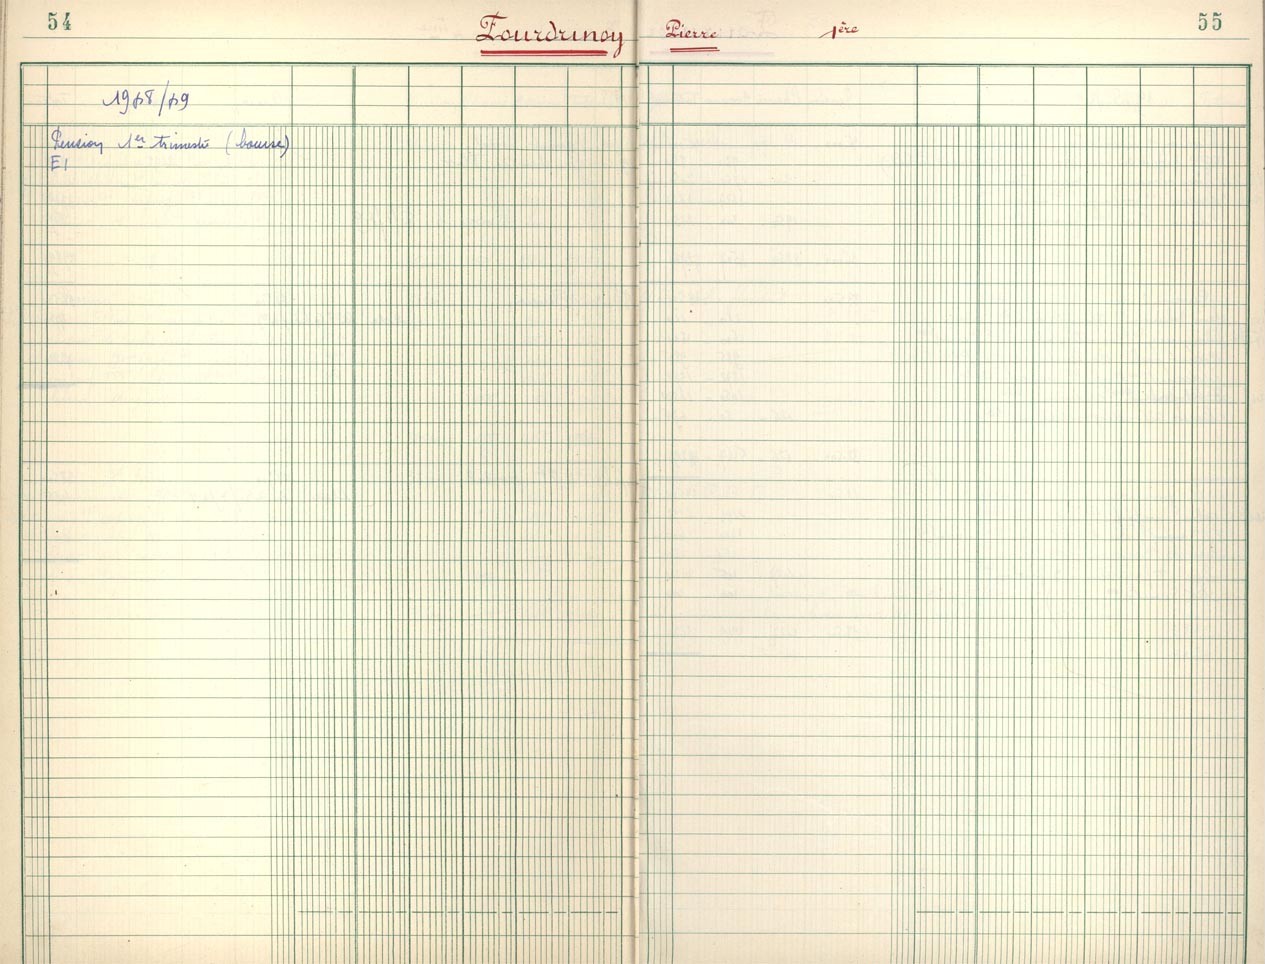 54
Fourdrinoy Pierre 1ère
55
1968/69
Pension 1er trimestre (bourse)
E1